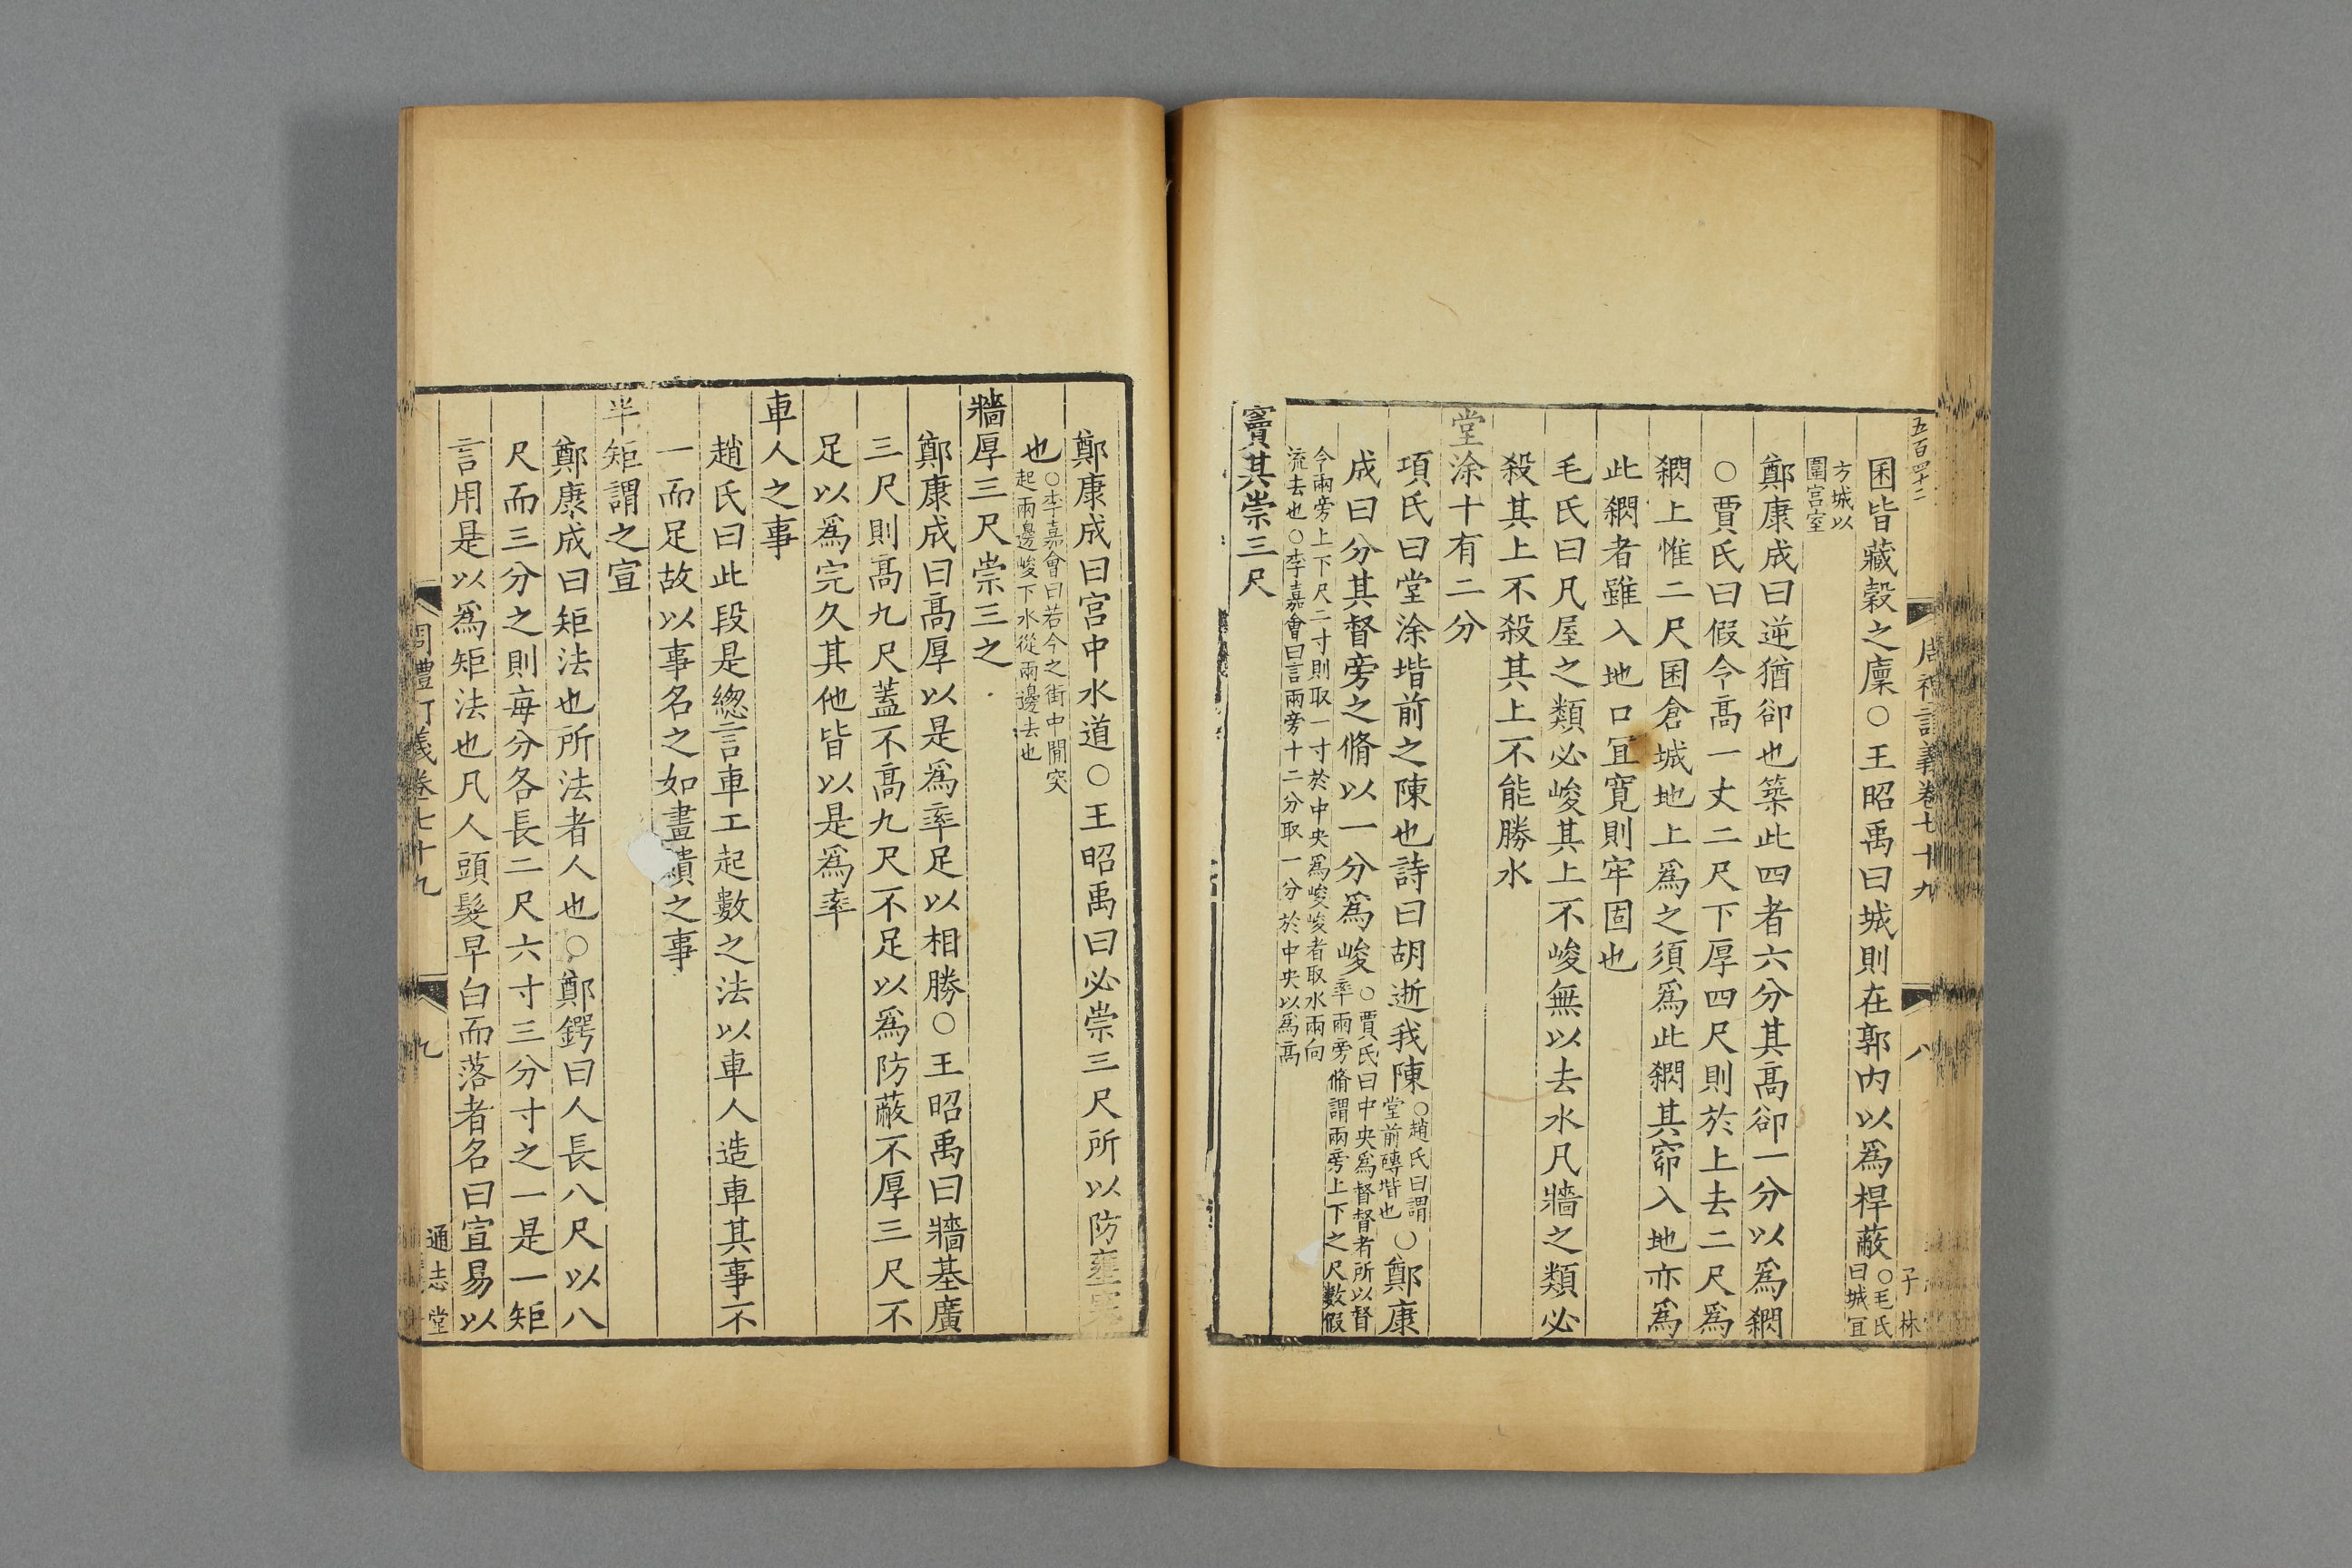 五百四十二
周禮訂義卷七十九
八
子林
囷皆藏穀之廩○王昭禹曰城則在郭内以爲桿蔽○毛氏曰城冝
方城以圍宫室
鄭康成曰逆猶卻也築此四者六分其髙卻一分以爲䋄
○賈氏曰假今髙一丈二尺下厚四尺則於上去二尺爲
䋄上惟二尺囷倉城地上爲之須爲此䋄其窌入地亦爲
此䋄者雖入地口冝寛則牢固也
毛氏曰凡屋之類必峻其上不峻無以去水凡牆之類必
殺其上不殺其上不能勝水
堂涂十有二分
項氏曰堂涂堦前之陳也詩曰胡逝我陳○趙氏曰謂堂前磚堦也○鄭康
成曰分其督旁之脩以一分爲峻○賈氏曰中央爲督督者所以督率兩旁脩謂兩旁上下之尺數假
今兩旁上下尺二寸則取一寸於中央爲峻峻者取水兩向流去也○李嘉會曰言兩旁十二分取一分於中央以爲髙
竇其崇三尺
鄭康成曰宫中水道○王昭禹曰必崇三尺所以防壅塞
也○李嘉會曰若今之街中間突起兩邊峻下水從兩邊去也
牆厚三尺崇三之
鄭康成曰髙厚以是爲率足以相勝○王昭禹曰牆基廣
三尺則髙九尺蓋不髙九尺不足以爲防蔽不厚三尺不
足以爲完久其他皆以是爲率
車人之事
趙氏曰此段是緫言車工起數之法以車人造車其事不
一而足故以事名之如畫繢之事
半矩謂之宣
鄭康成曰矩法也所法者人也○鄭鍔曰人長八尺以八
尺而三分之則毎分各長二尺六寸三分寸之一是一矩
言用是以爲矩法也凡人頭髮早白而落者名曰宣易以
周禮訂義卷七十九
九
通志堂